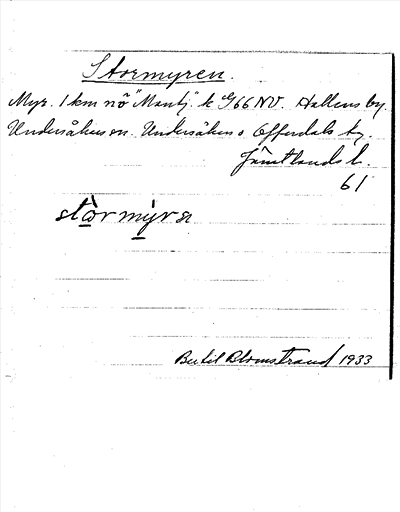 Stormyren.
Myr. 1 km nö "Mantj." k G66NV. Hallens by.
Undersåkers sn. Undersåkers o Offerdals tg.
Jämtlands l.
61
stòrmýra
Bertil Blomstrand 1933